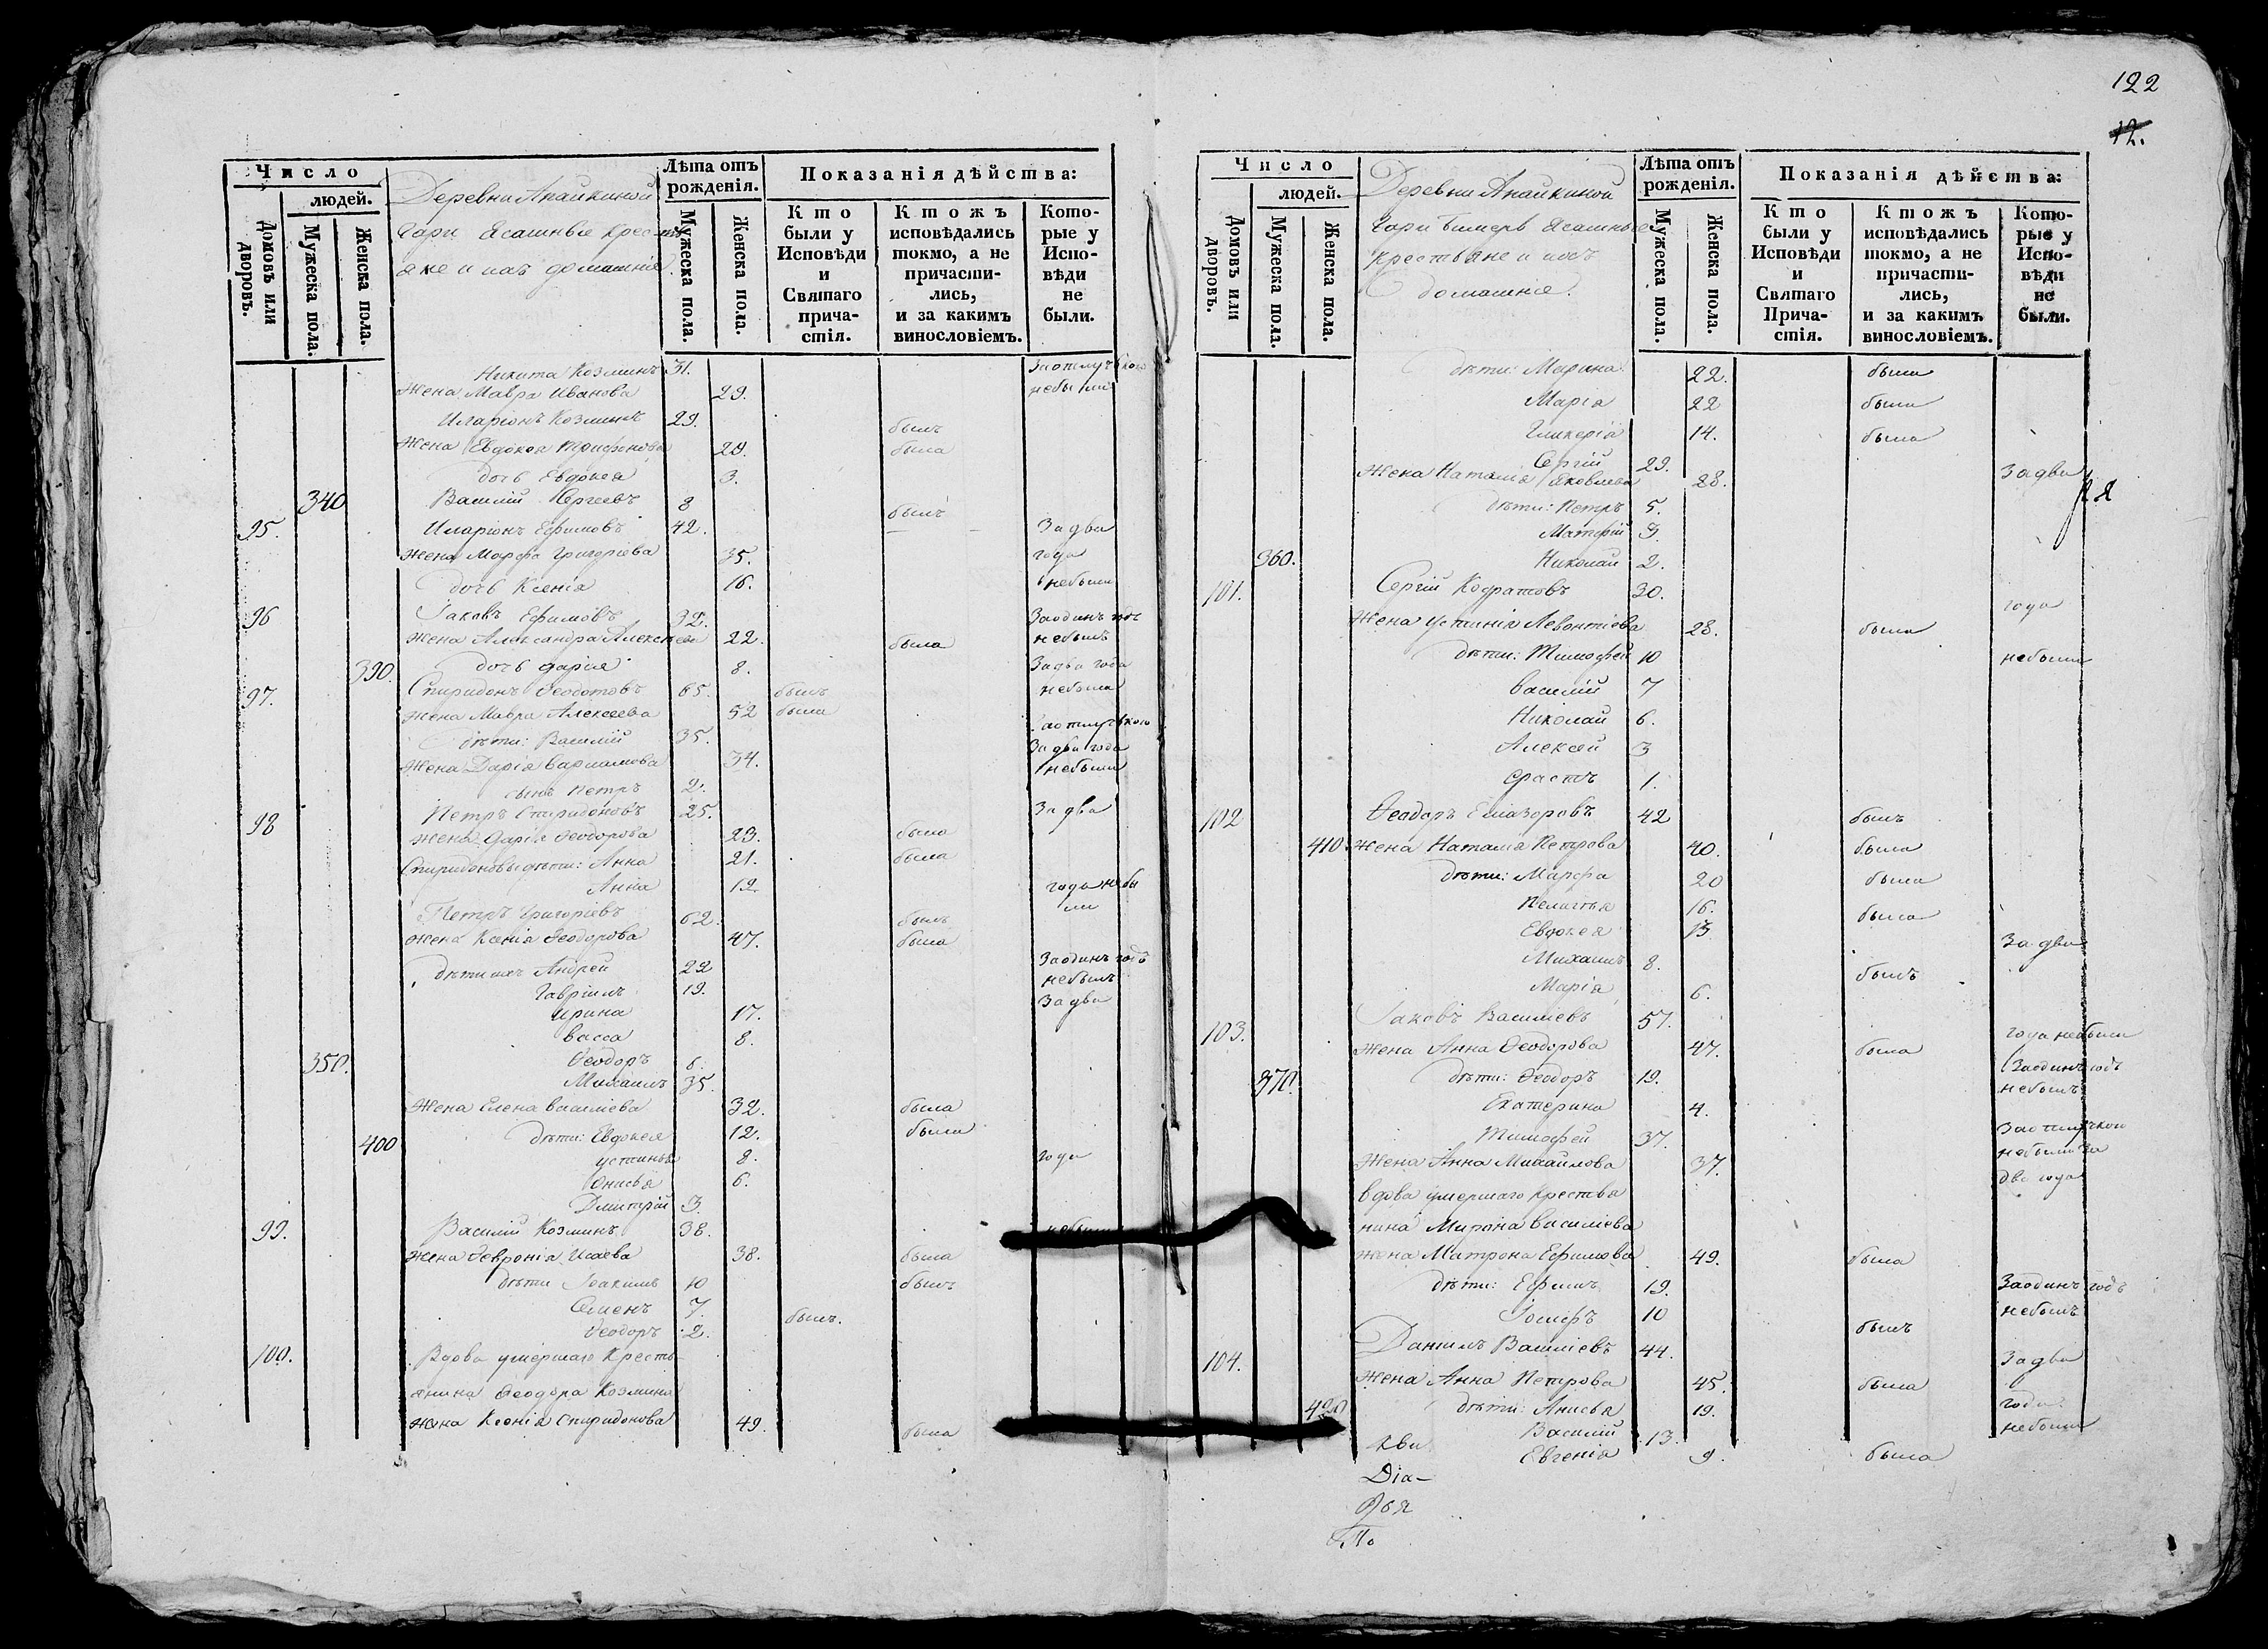 122
12.
Число
людей.
Домовъ или дворовъ.
Мужеска пола.
Женска пола.
Деревни Апайкиной
Гари Ясашные крест
яне и ихъ домашніе
Лѣта отъ рожденія.
Мужеска пола.
Женска пола.
Показанія дѣйства:
Кто были у Исповѣди и Святаго причастія.
Ктожъ исповѣдались токмо, а не причастились, и за какимъ винословіемъ.
Которые у Исповѣди не были.
Никита Козминъ 31.
Жена Мавра Иванова 29. небыли
Иларіонъ Козминъ 29. былъ
Жена Евдокея Трифонова 29. была
дочь Евдокея 3.
340 Василій Сергеевъ 8 былъ
95. Иларіонъ Ефимовъ 42. За два
Жена Марфа Григоріева 35. года
дочь Ксенія 16. небыли
96 Іаковъ Ефимовъ 32. Заодинъ годъ
Жена Александра Алексеева 22. была небылъ
390. дочь Дарія 8. За два года
97. Спиридонъ Феодотовъ 65. былъ небыла
Жена Мавра Алексеева 52 была
дѣти: Василій 35. За два года
Жена Дарія Варламова 34. небыли
сынъ Петръ 2.
98 Петръ Спиридоновъ 25. За два
Жена Дарія Феодорова 23. была
Спиридоновы дѣти: Анна 21. была
Анна 12. года небы
ли
Петръ Григоріевъ 62. былъ
Жена Ксенія Феодорова 47. была
дѣти ихъ Андрей 22 Заодинъ годъ
небылъ
Гавріилъ 19. За два
Ирина 17.
Васса 8.
350. Феодоръ 6.
Михаилъ 35.
Жена Елена Василіева 32. была
400 дѣти: Евдокея 12. была
Устинья 8. года
Анисья 6.
Дмитрій 3.
99. Василій Козминъ 38. небыли
Жена Февронія Исаева 38. была
дѣти Іоакимъ 10 былъ
Семенъ 7. былъ.
Феодоръ 2.
100. Вдова умершаго Кресть
янина Феодора Козмина
жена Ксенія Спиридонова 49. была
Число
людей.
Домовъ или дворовъ.
Мужеска пола.
Женска пола.
Деревни Апайкиной
Гари Ясашные
крестьяне и ихъ
домашніе.
Лѣта отъ рожденія.
Мужеска пола.
Женска пола.
Показанія дѣйства:
Кто были у Исповѣди и Святаго Причастія.
Ктожъ исповѣдались токмо, а не причастились, и за какимъ винословіемъ.
Которые у Исповѣди не были.
дѣти: Марина 22. была
Марія 22 была
Гликерія 14. была
Сергій 29. За два
Жена Наталія Яковлева 28.
дѣти: Петръ 5.
Матфій 3.
360. Николай 2.
101. Сергій Кодратовъ 30. года
Жена Устинія Левонтіева 28. была
дѣти: Тимофей 10 небыли
Василій 7
Николай 6.
Алексей 3
Ерастъ 1.
102 Феодоръ Елиазоровъ 42 былъ
410. Жена Наталія Петрова 40. была
дѣти: Марфа 20 была
Пелагея 16. была
Евдокея 13 За два
Михаилъ 8. былъ
Марія 6.
103. Іаковъ Василіевъ 57. года небыли
Жена Анна Феодорова 47. была
370. дѣти: Феодоръ 19. Заодинъ годъ
небылъ
Екатерина 4.
Тимофей 37. За отлучкою
Жена Анна Михаилова 37. небыли за
два года
вдова умершаго крестья
нина Мирона Василіева
жена Матрона Ефимова 49. была
дѣти: Ефимъ 19. Заодинъ годъ
небылъ
Іосифъ 10 былъ
104. Даніилъ Василіевъ 44. За два
Жена Анна Петрова 45. была
420 дѣти: Анисья 19. года
Василій 13. небыли
Евгенія 9. была
Діа-
По